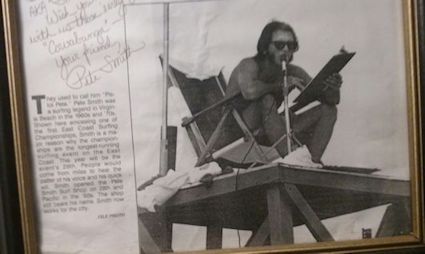 AKA
Wish you
with us these
"Cowabunga"
Your friend
Pete Smith
They used to call him "Pis-
tol Pete." Pete Smith was
a surfing legend in Virgin-
ia Beach in the 1960s and '70s.
Shown here announcing one of
the first East Coast Surfing
Championships, Smith is a ma-
jor reason why the champion-
ships are the longest-running
surfing event on the East
Coast. This year will be the
event's 29th. People would
come from miles to hear the
sound of his voice and his quick
wit. Smith opened the Pete
Smith Surf Shop on 28th and
Pacific in the '60s. The shop
still bears his name. Smith now
works for the city.
FILE PHOTO